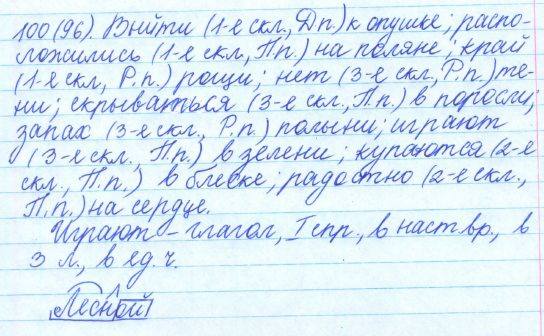 100(96). Выйти (1-е скл., Д.п.) к опушке; распо-
ложились (1-е скл., П.п.) на поляне; край
(1-е скл., Р.п.) рощи; нет (3-е скл., Р.п.) те-
ни; скрываться (3-е скл., П.п.) в поросли;
запах (3-е скл., Р.п.) полыни; играют
(3-е скл., П.п.) в зелени; купаются (2-е
скл., П.п.) в блеске; радостно (2-е скл.,
П.п.) на сердце.
Играют – глагол, I спр., в наст.вр., в
3 л., в ед. ч.
Лесной